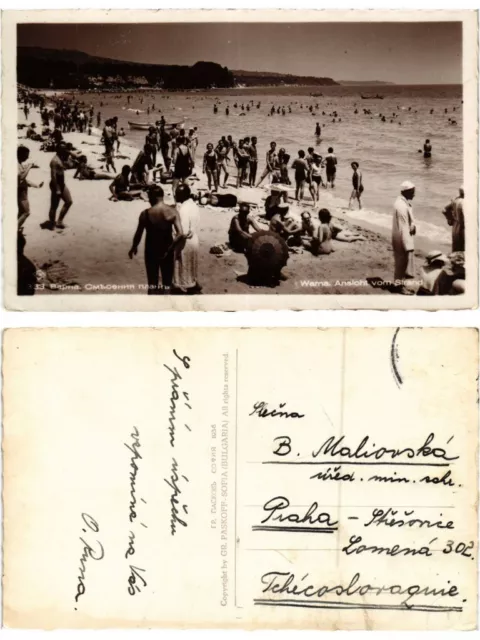 33 Варна. Смѣсения плажъ
Warna. Ansicht vom Strand
S přáním úspěchu
vzpomíná na Vás
O. Runa.
ГР. ПАСКОВЪ СОФИЯ
Copyright by GR. PASKOFF-SOFIA (BULGARIA) All rights reserved.
Slečna
B. Maliovská
úřed. min. sehr.
Praha - Střešovice
Lomená 302.
Tchécoslovaquie.